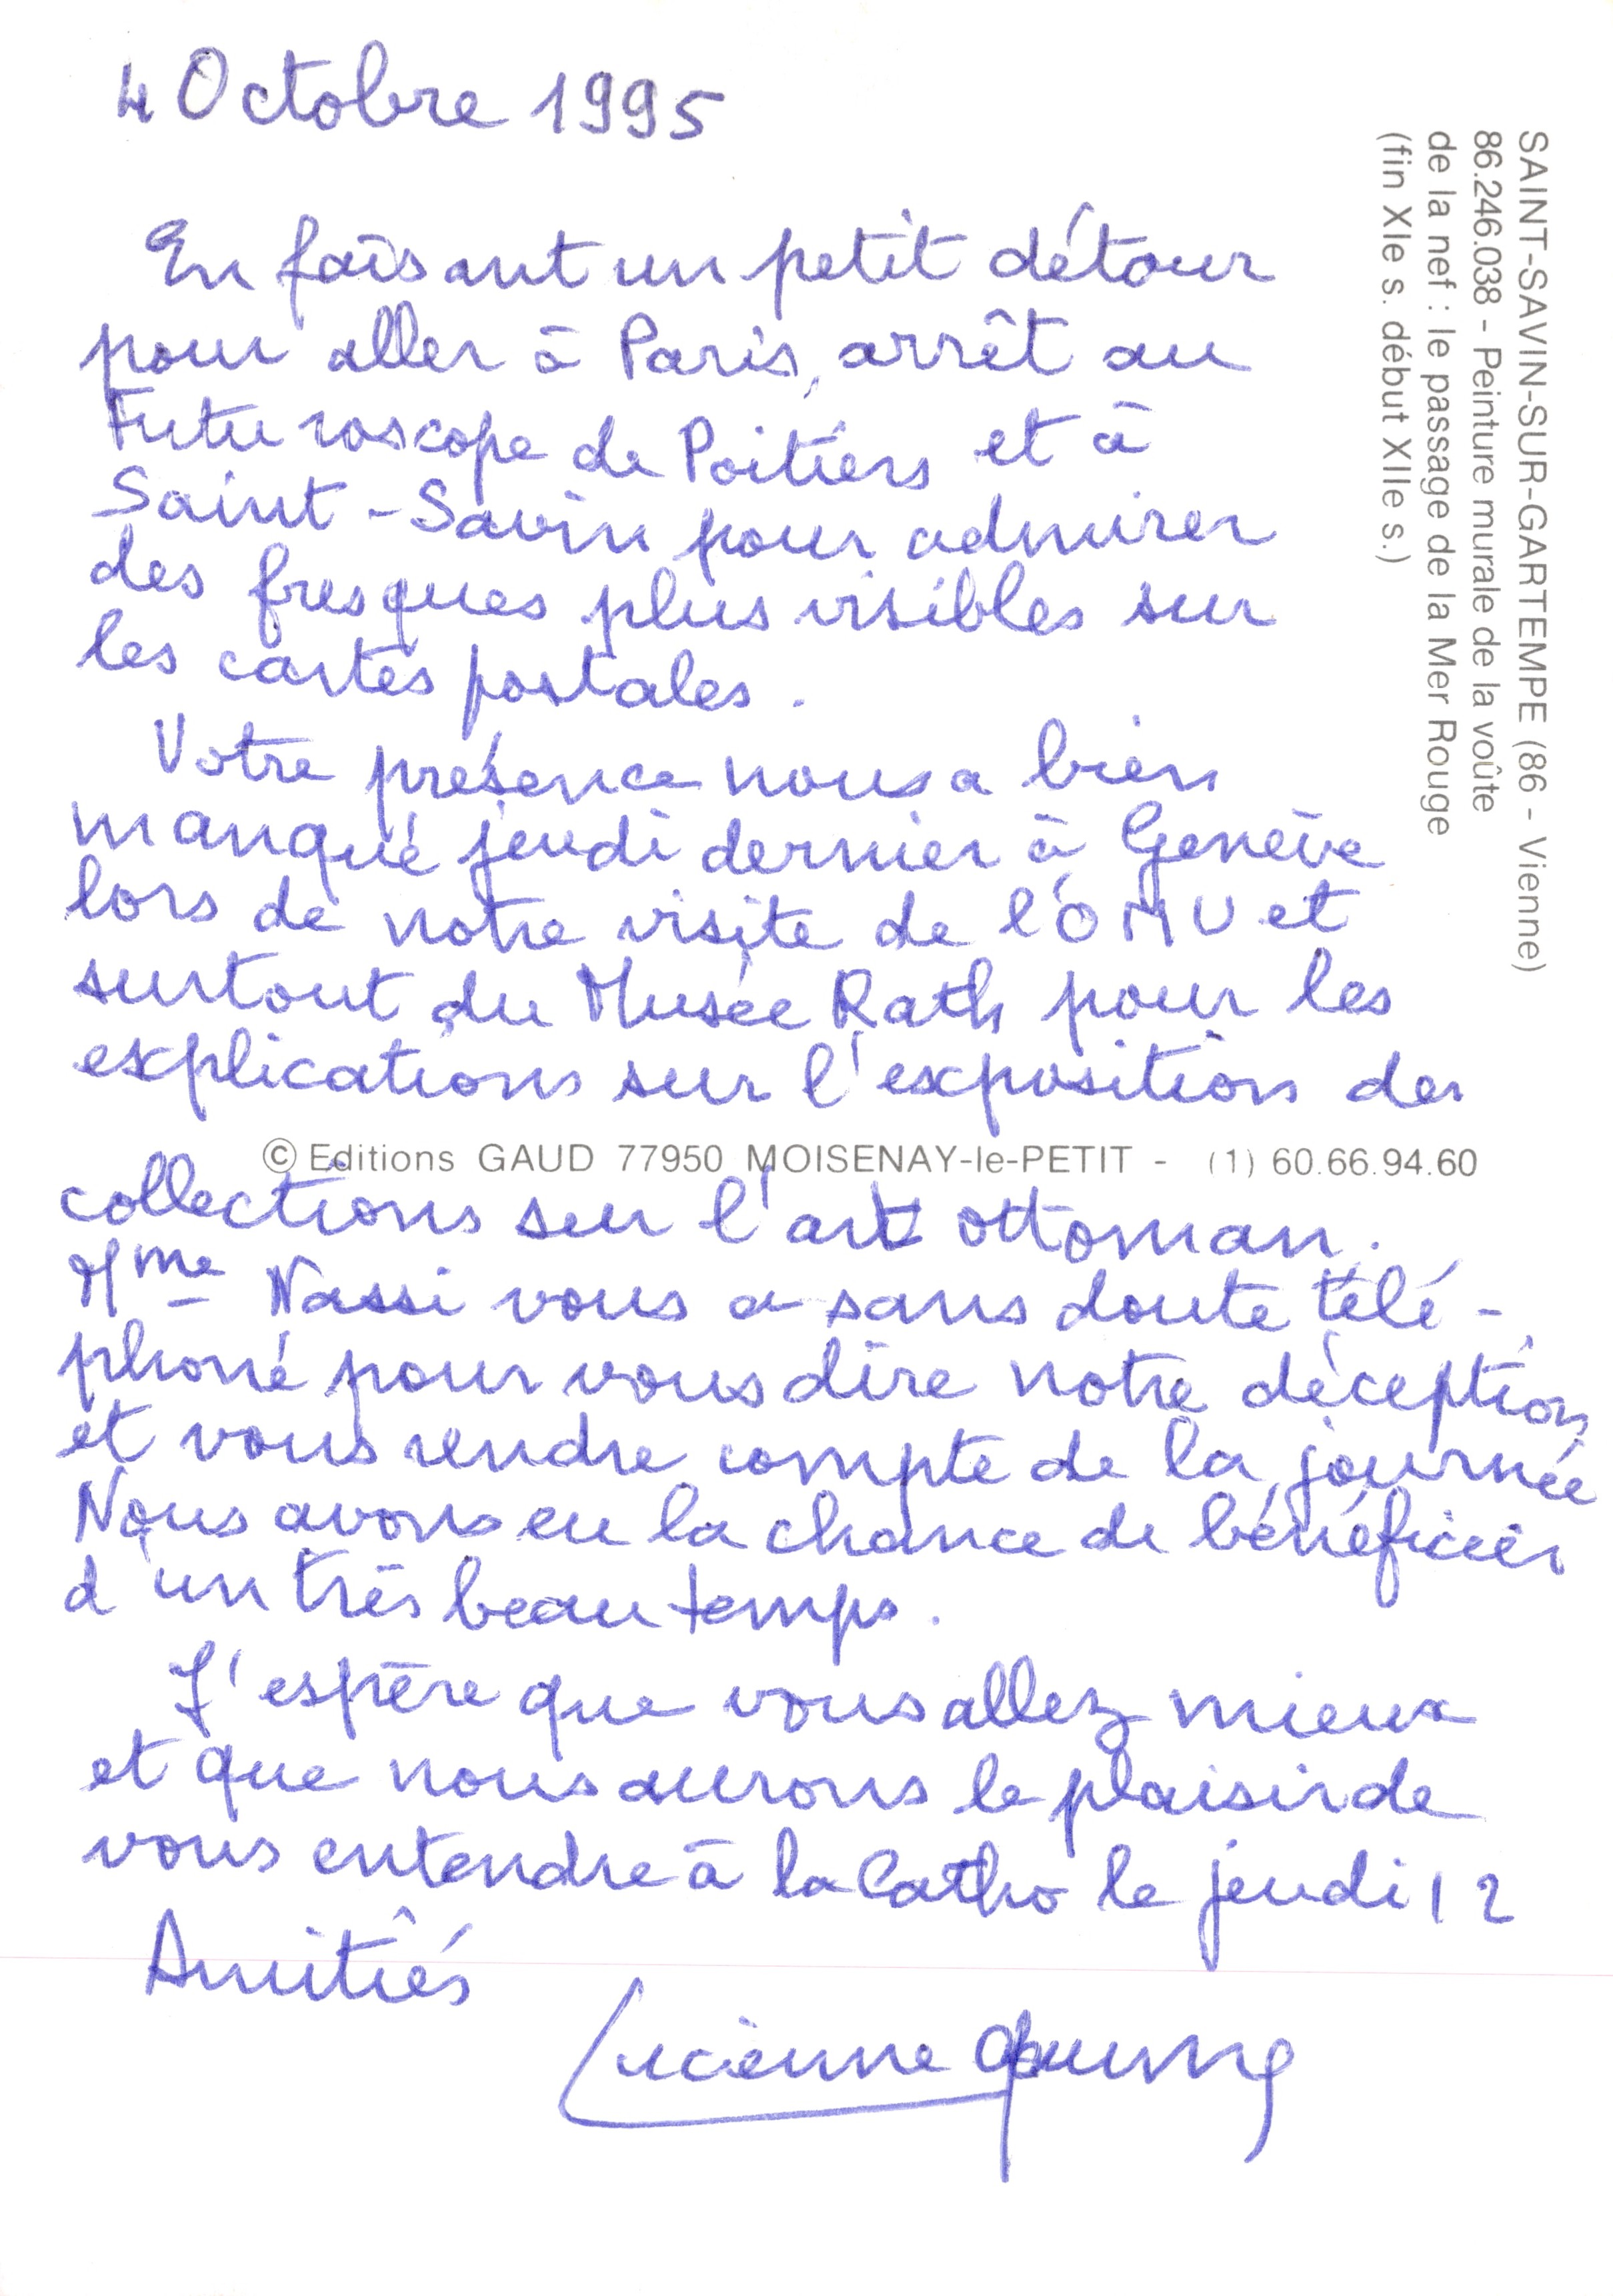 4 Octobre 1995
En faisant un petit détour
pour aller à Paris, arrêt au
Futuroscope de Poitiers et à
Saint-Savin pour admirer
des fresques plus visibles sur
les cartes postales.
Votre présence nous a bien
manqué jeudi dernier à Genève
lors de notre visite de l'OMU et
surtout du Musée Rath pour les
explications sur l'exposition des
collections sur l'art ottoman.
Mme Nassi vous a sans doute télé-
phoné pour vous dire notre déception
et vous rendre compte de la journée
Nous avons eu la chance de bénéficier
d'un très beau temps.
J'espère que vous allez mieux
et que nous aurons le plaisir de
vous entendre à la Catho le jeudi 12
Amitiés
Lucienne
SAINT-SAVIN-SUR-GARTEMPE (86 - Vienne)
86.246.038 - Peinture murale de la voûte
de la nef : le passage de la Mer Rouge
(fin XIe s. début XIIe s.)
© Editions GAUD 77950 MOISENAY-le-PETIT - (1) 60.66.94.60